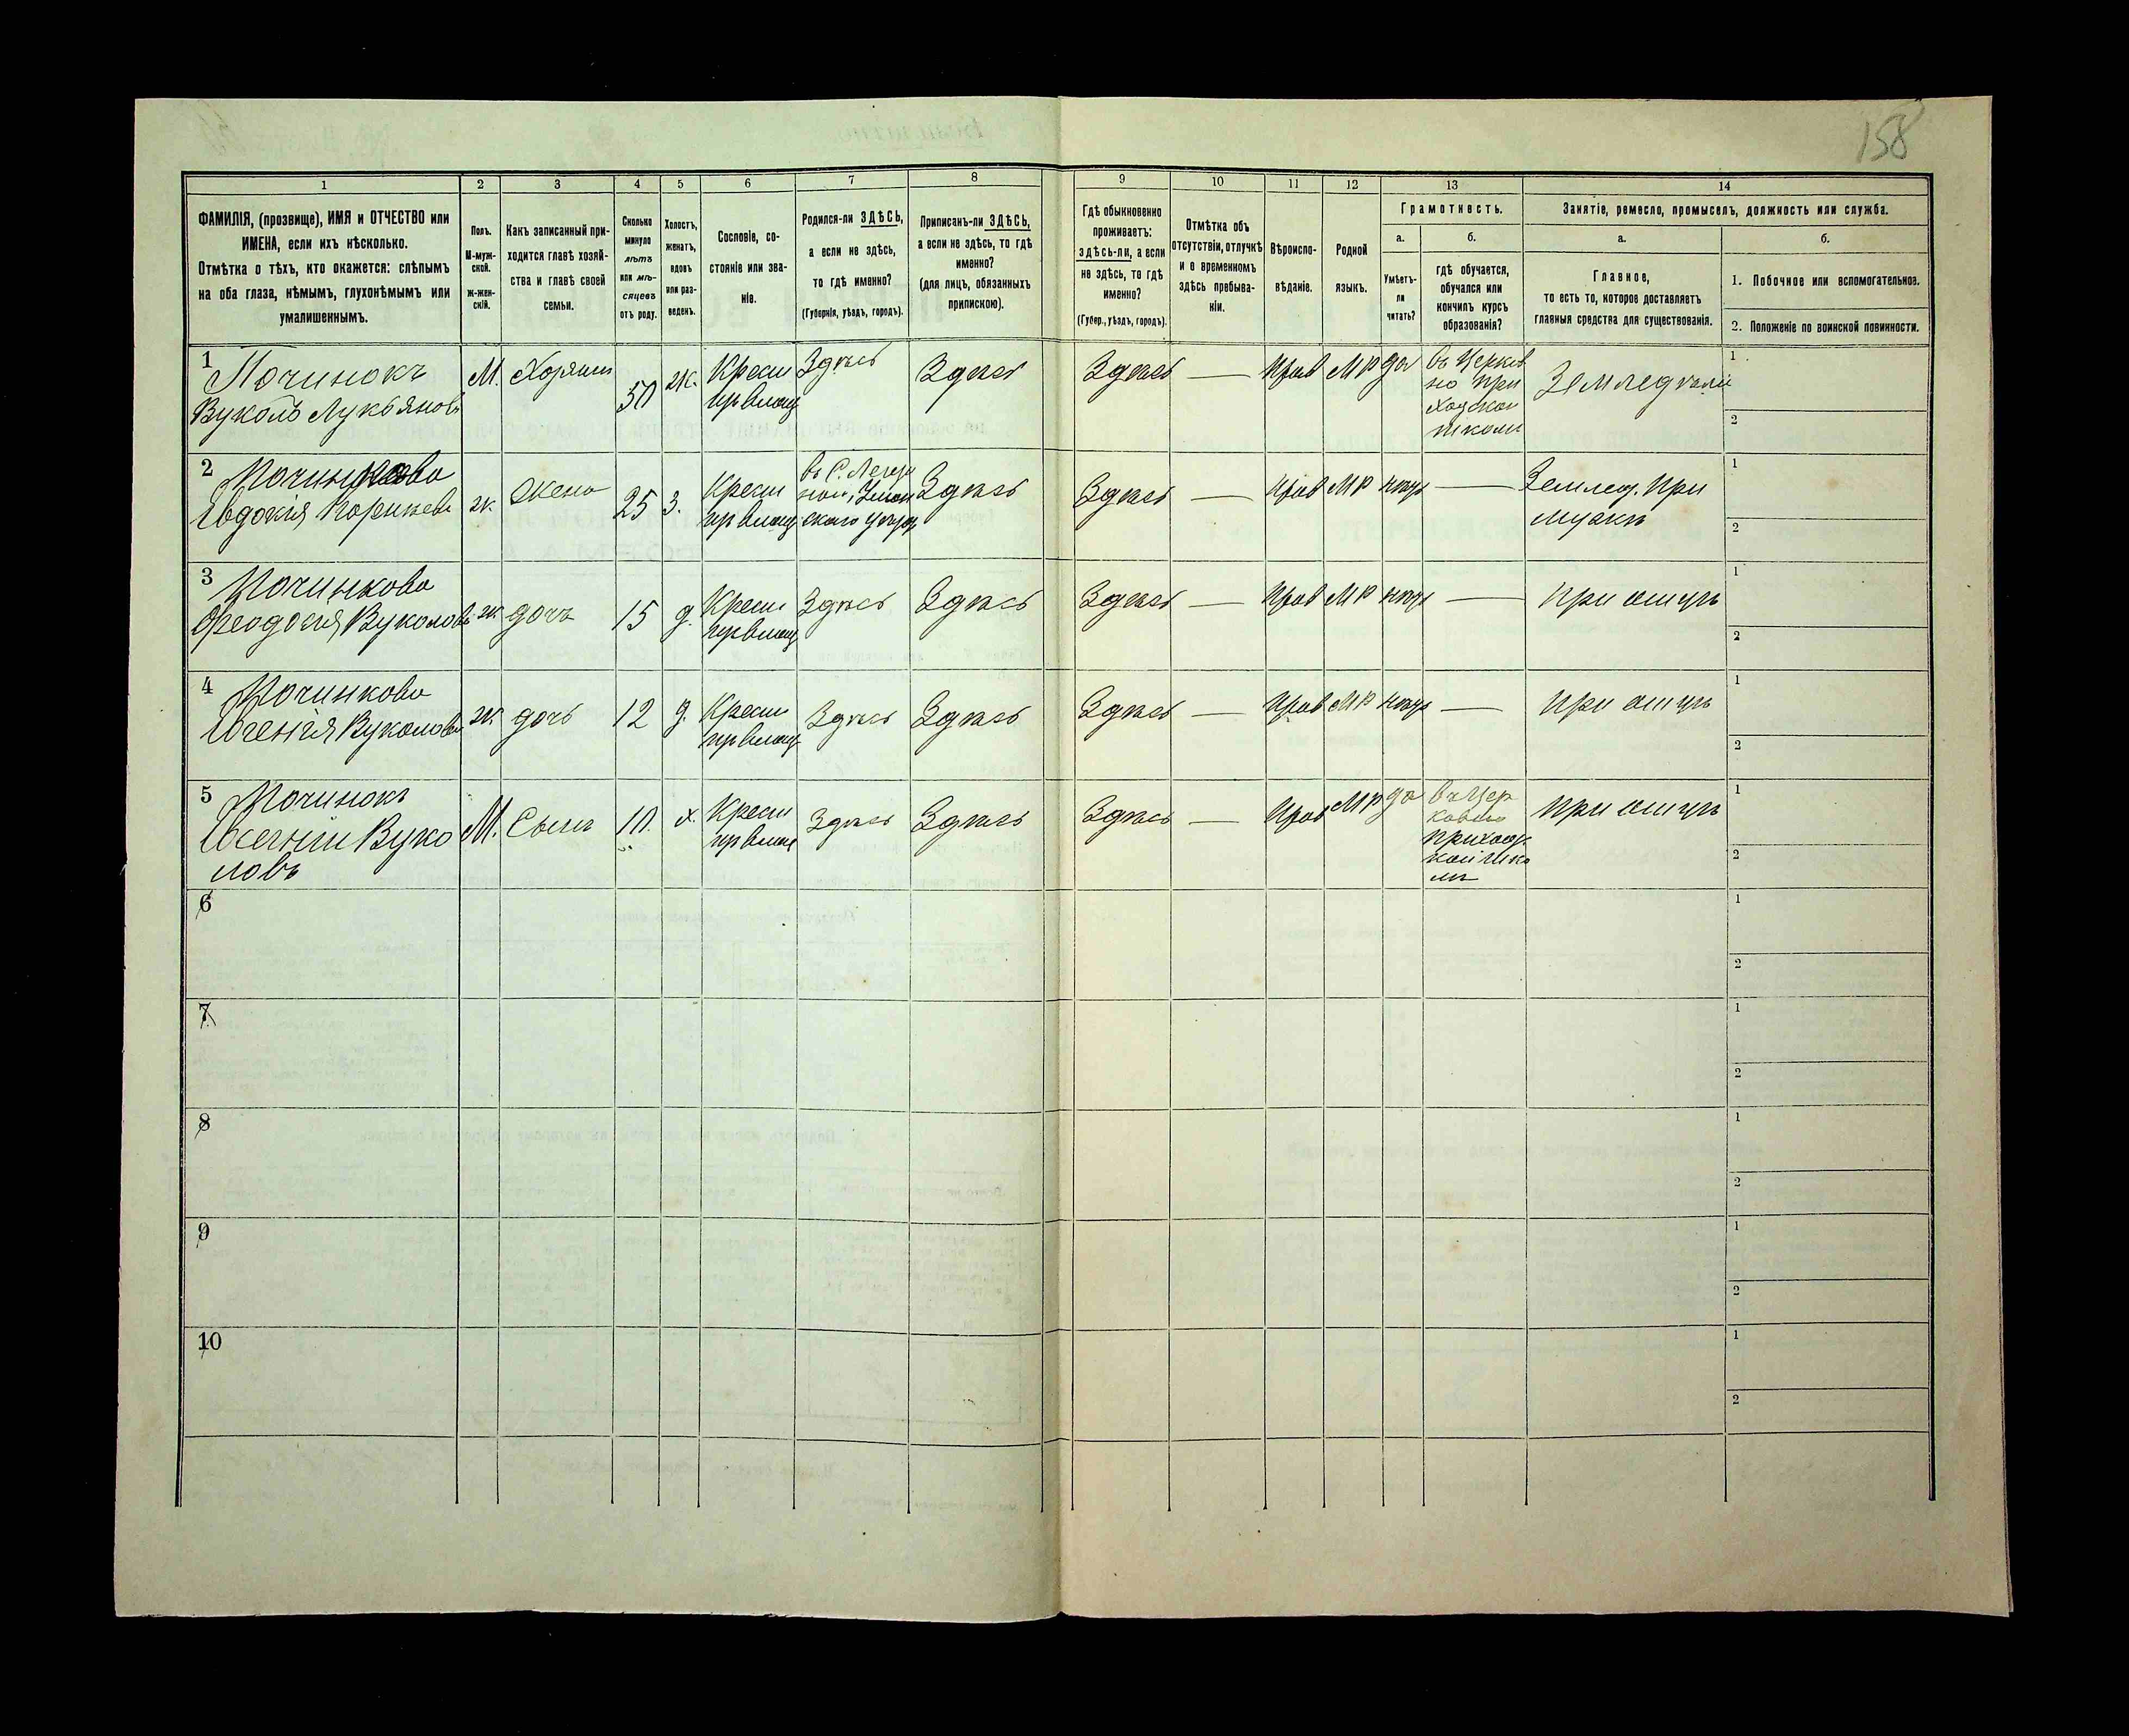 158
1
2
3
4
5
6
7
8
9
10
11
12
13
14
ФАМИЛІЯ, (прозвище), ИМЯ и ОТЧЕСТВО или
ИМЕНА, если ихъ нѣсколько.
Отмѣтка о тѣхъ, кто окажется: слѣпымъ
на оба глаза, нѣмымъ, глухонѣмымъ или
умалишеннымъ.
Полъ.
М-муж-
ской.
Ж-жен-
скій.
Какъ записанный при-
ходится главѣ хозяй-
ства и главѣ своей
семьи.
Сколько
минуло
лѣтъ
или мѣ-
сяцевъ
отъ роду.
Холостъ,
женатъ,
вдовъ
или раз-
веденъ.
Сословіе, со-
стояніе или зва-
ніе.
Родился-ли ЗДѢСЬ,
а если не здѣсь,
то гдѣ именно?
(Губернія, уѣздъ, городъ).
Приписанъ-ли ЗДѢСЬ,
а если не здѣсь, то гдѣ
именно?
(для лицъ, обязанныхъ
припискою).
Гдѣ обыкновенно
проживаетъ:
ЗДѢСЬ-ЛИ, а если
не здѣсь, то гдѣ
именно?
(Губер., уѣздъ, городъ).
Отмѣтка объ
отсутствіи, отлучкѣ
и о временномъ
здѣсь пребыва-
ніи.
Вѣроиспо-
вѣданіе.
Родной
языкъ.
Грамотность.
а.
Умѣетъ-
ли
читать?
б.
гдѣ обучается,
обучался или
кончилъ курсъ
образованія?
Занятіе, ремесло, промыселъ, должность или служба.
а.
Главное,
то есть то, которое доставляетъ
главныя средства для существованія.
б.
1. Побочное или вспомогательное.
2. Положеніе по воинской повинности.
1
Починокъ
Вуколъ Лукьяновъ
М.
Хозяин
50
ж.
Крест
Здѣсь
Здѣсь
Здѣсь
—
Прав
МР
да
въ Церков
но при
ходской
школи
Земледѣліе
1
2
2
Починкова
Евдокія
ж.
Жена
25
З.
Крест
въ С.
скаго уѣзд
Здѣсь
Здѣсь
—
Прав
МР
нѣтъ
—
Землед. при
мужѣ
1
2
3
Починкова
Феодосія Вуколов
ж.
дочь
15
д.
Крест
Здѣсь
Здѣсь
Здѣсь
—
Прав
МР
нѣтъ
—
при отцѣ
1
2
4
Починкова
Вуколова
ж.
дочь
12
д.
Крест
Здѣсь
Здѣсь
Здѣсь
—
Прав
МР
нѣтъ
—
при отцѣ
1
2
5
Починокъ
Вуко
ловъ
М.
Сынъ
10.
х.
Крест
Здѣсь
Здѣсь
Здѣсь
—
Прав
МР
да
въ Цер
ковно
приход.
ской шко
лѣ
при отцѣ
1
2
6
1
2
7
1
2
8
1
2
9
1
2
10
1
2